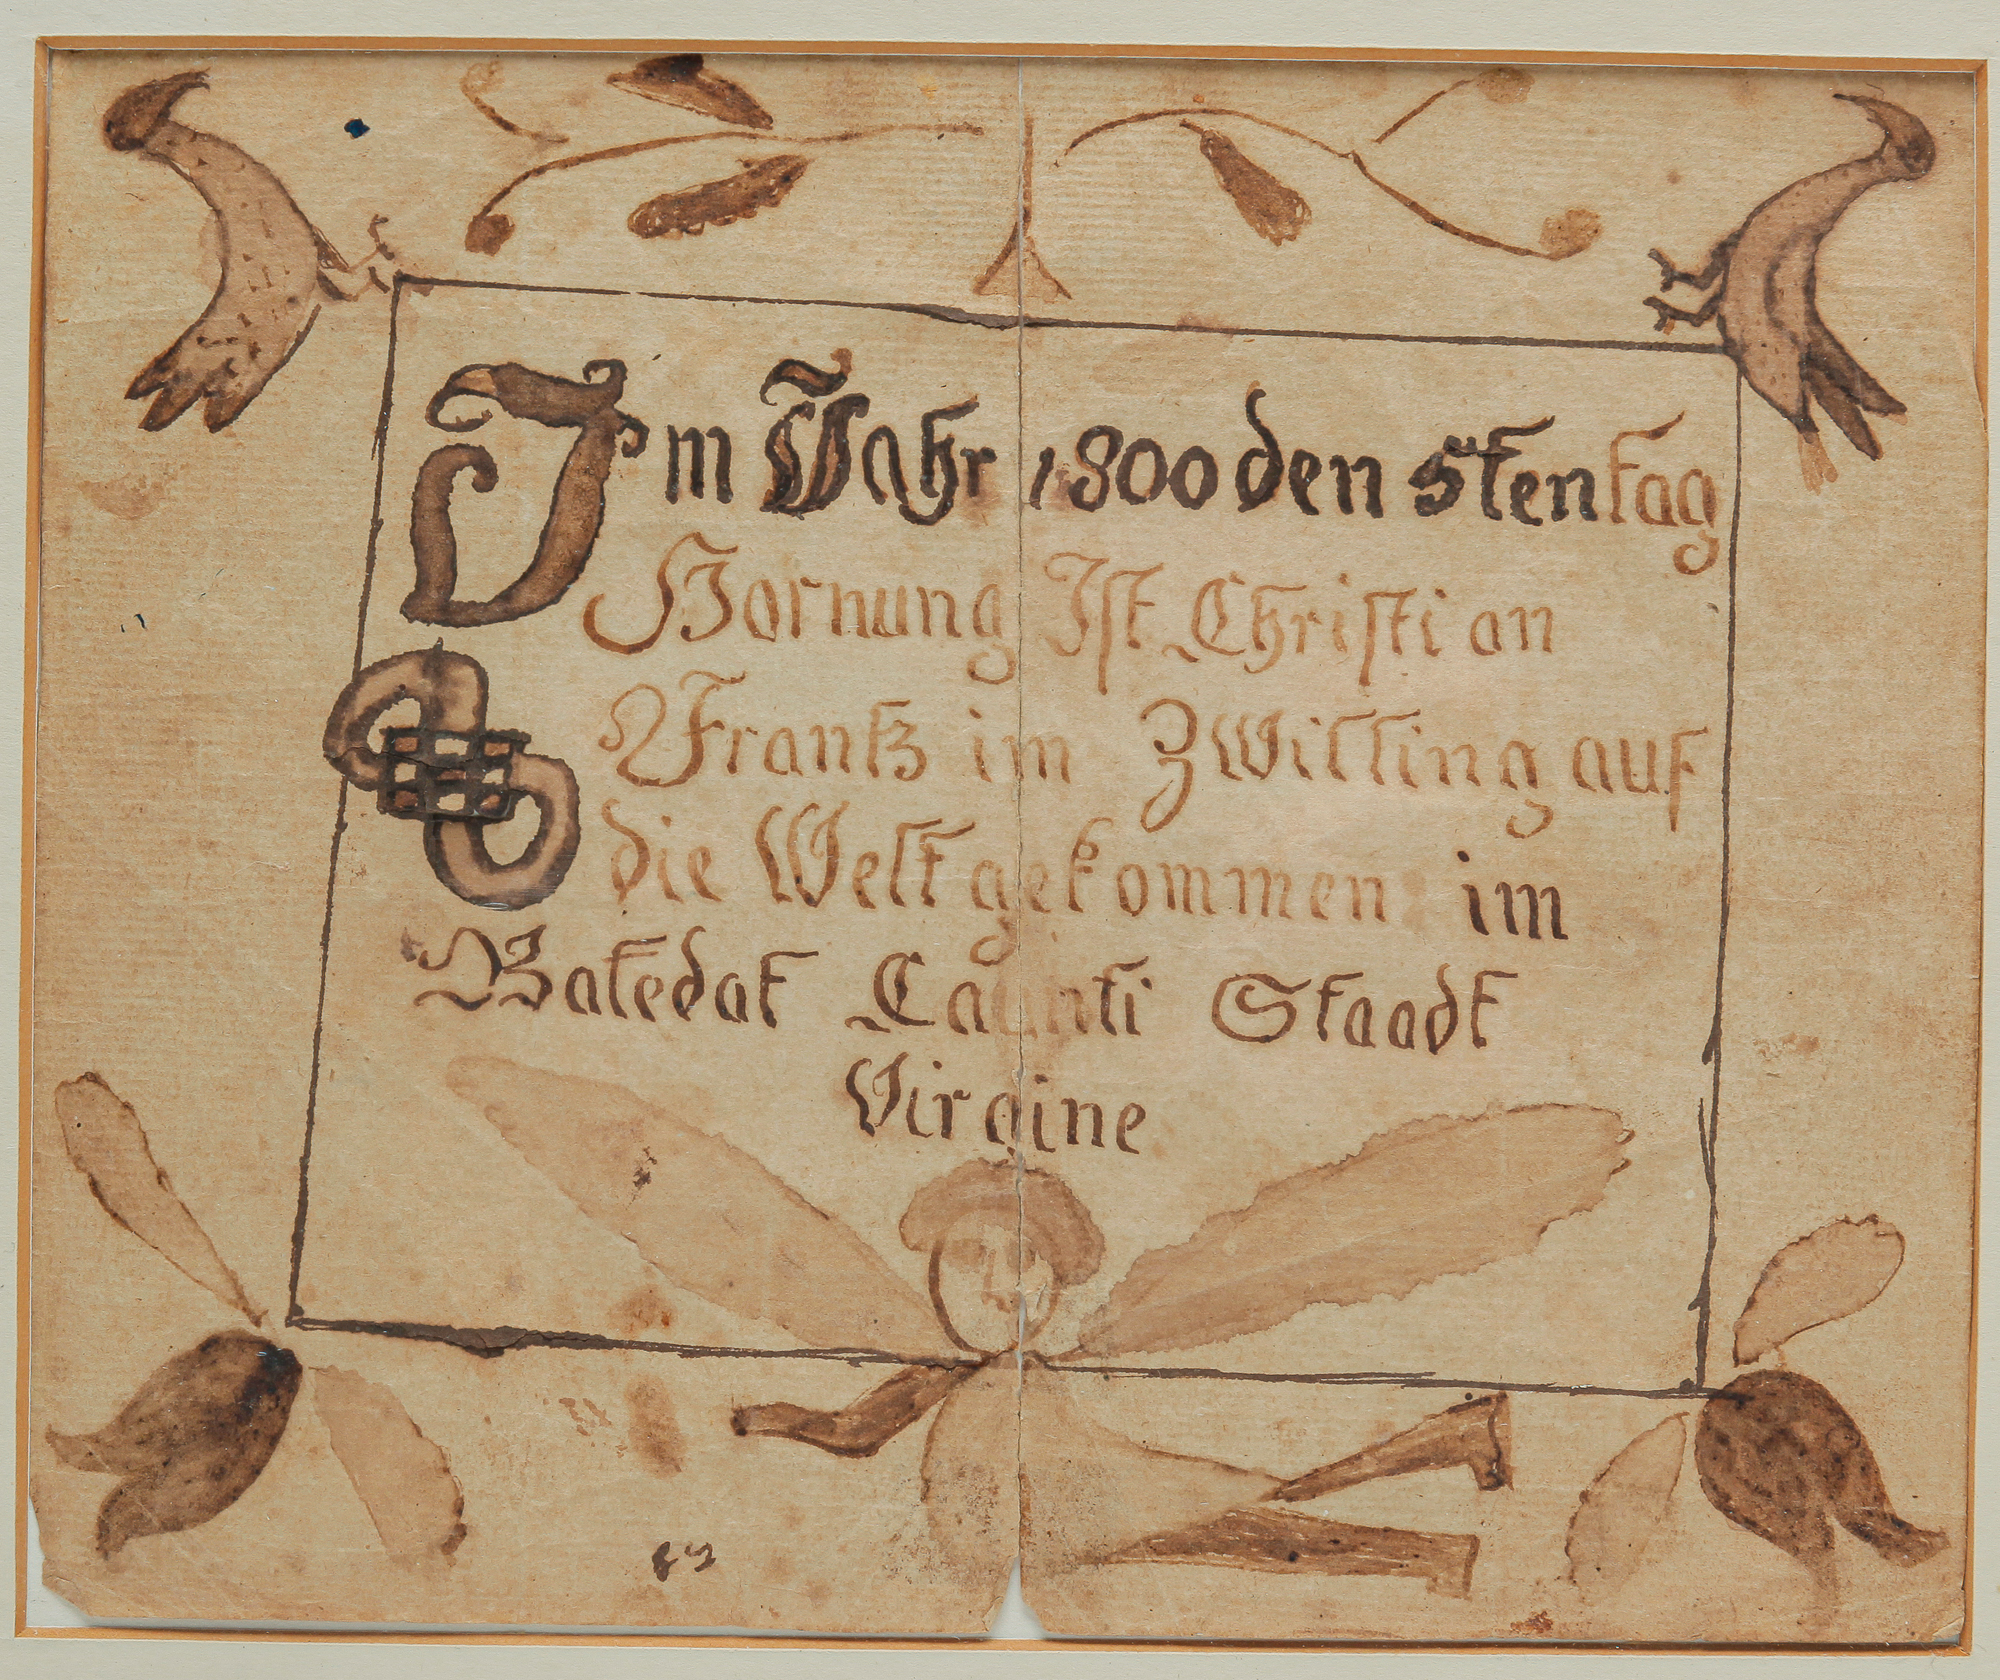 Im Jahr 1800 den 5ten tag
Hornung Ist Christi an
Frantz im Zwilling auf
die Welt gekommen im
Batedat Caunti Staadt
Virgine